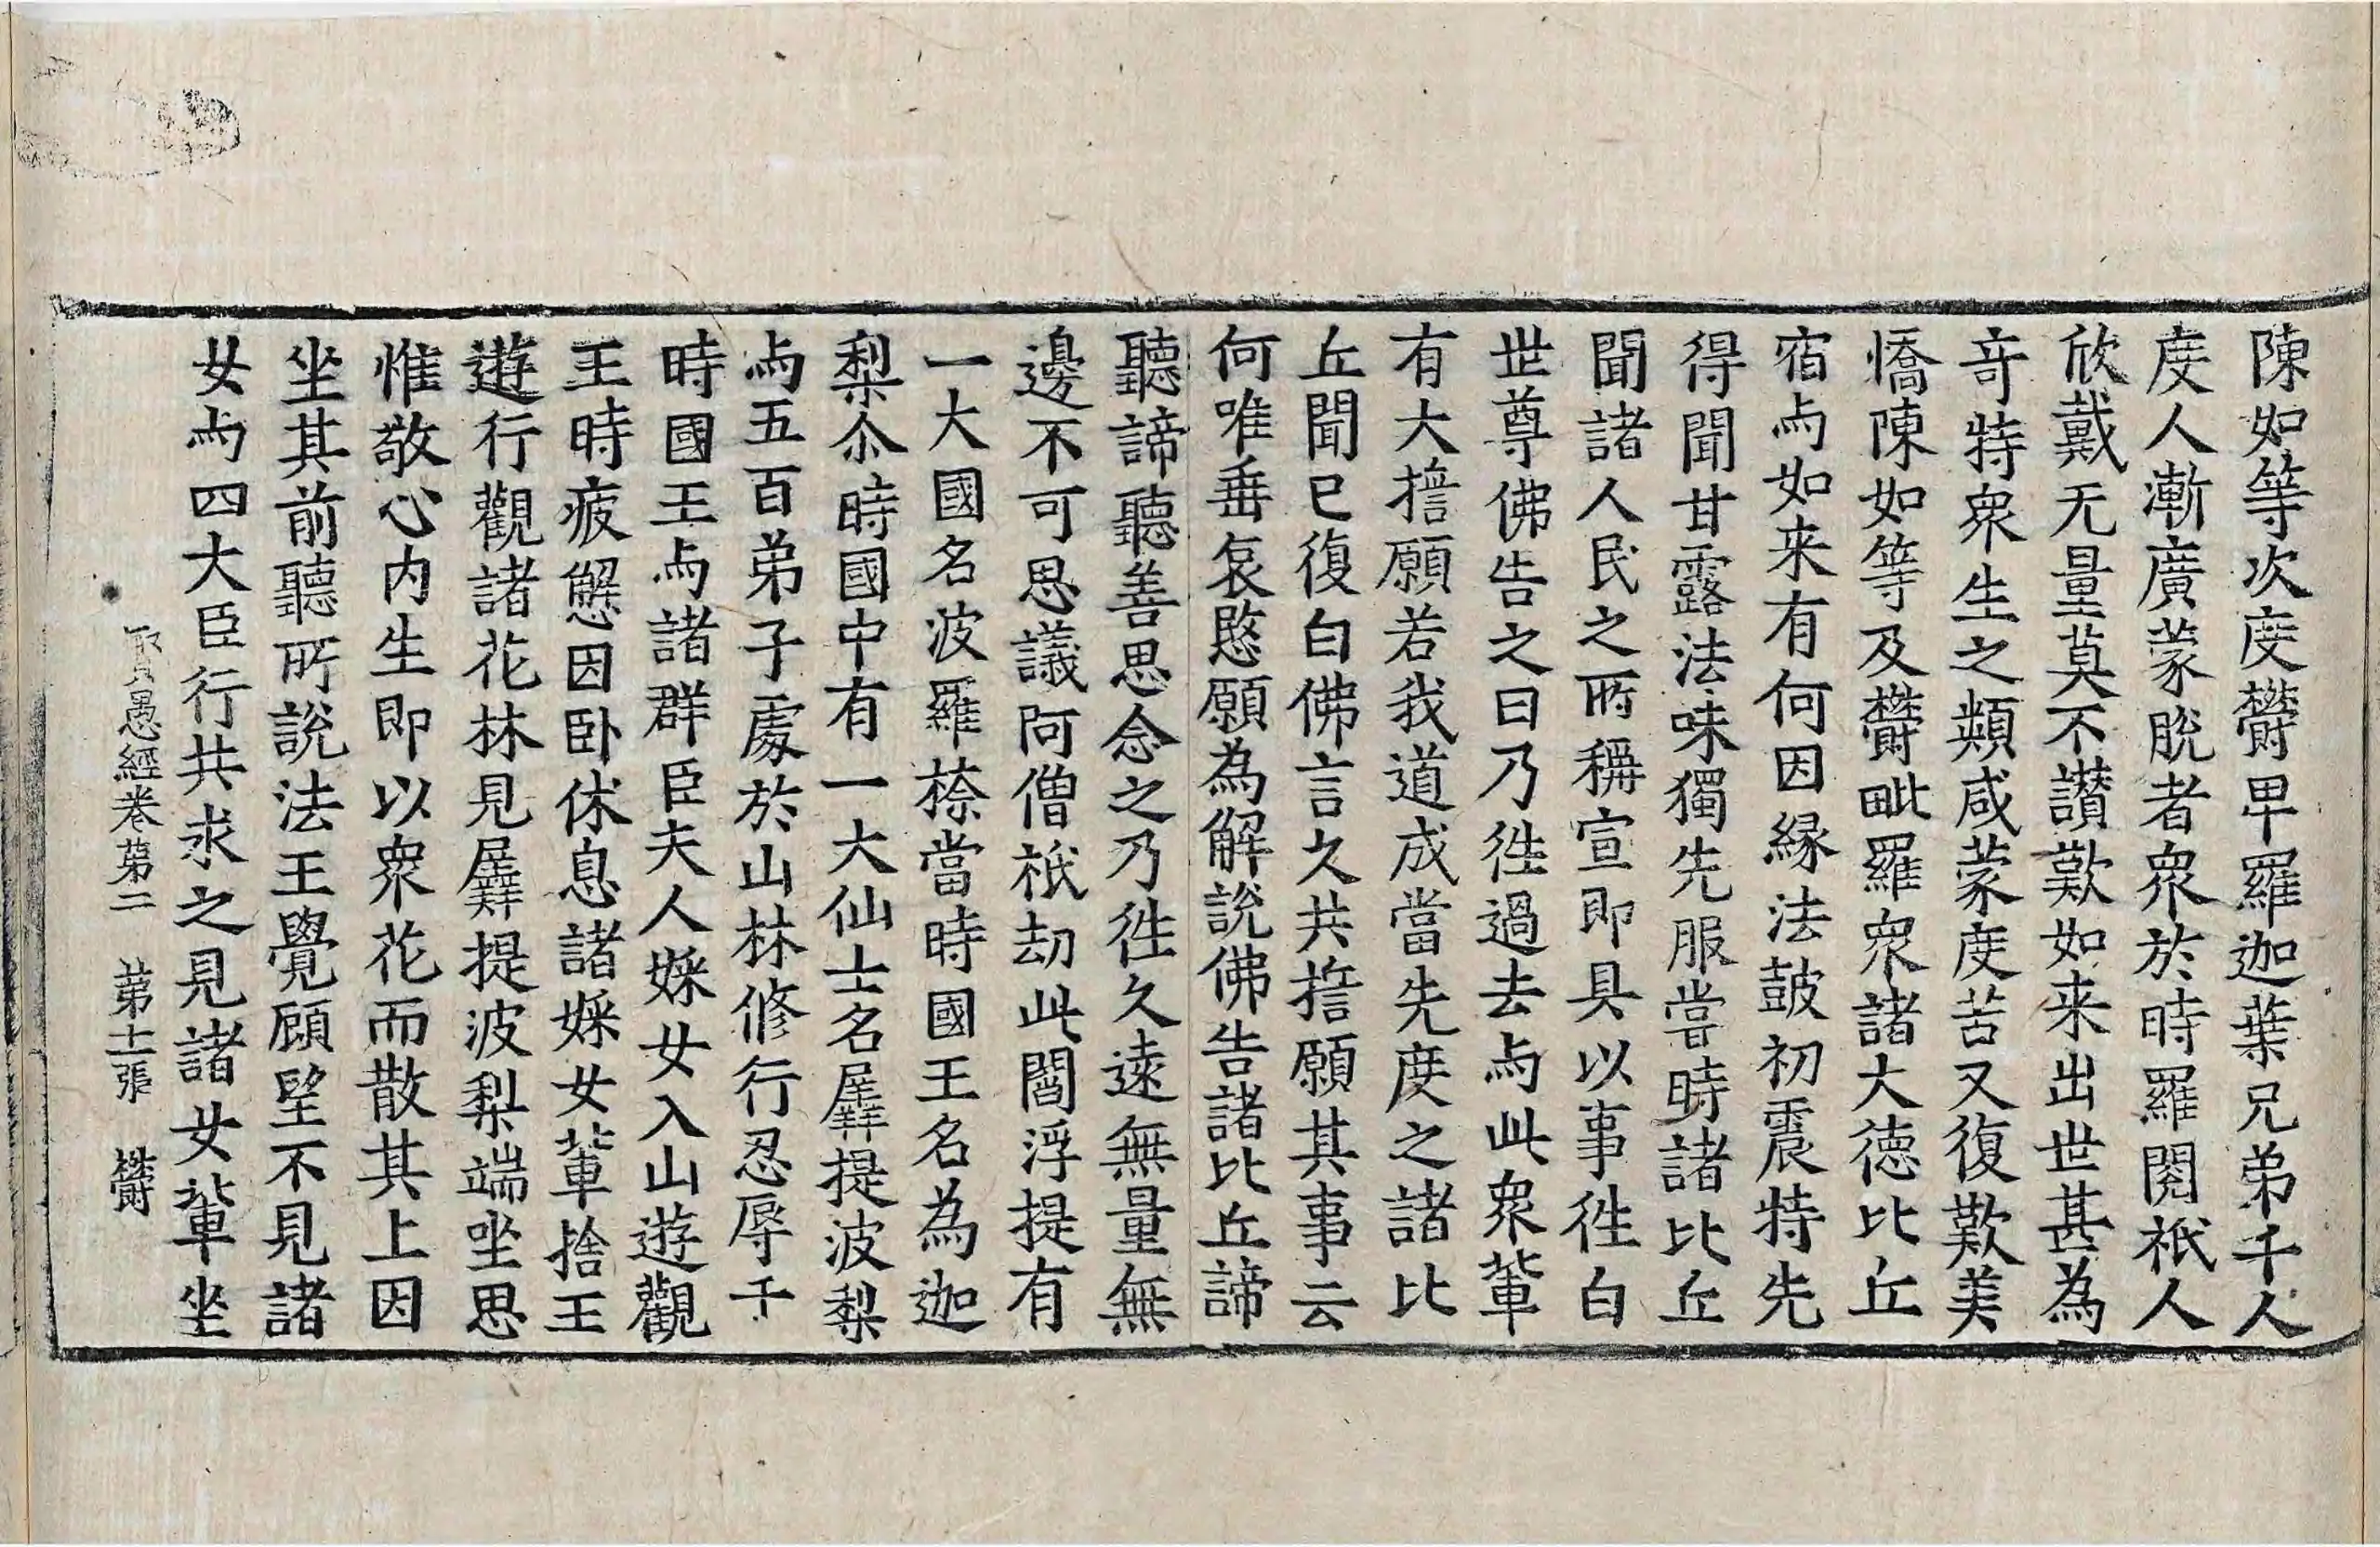 陳如等次度欝卑羅迦葉兄弟千人
度人漸廣蒙脫者衆於時羅閱祇人
欣戴无量莫不讚歎如来出世甚為
奇特衆生之類咸蒙度苦又復歎美
憍陳如等及欝毗羅衆諸大德比丘
宿与如来有何因緣法鼓初震特先
得聞甘露法味獨先服甞時諸比丘
聞諸人民之所稱宣即具以事徃白
世尊佛告之曰乃徃過去与此衆輩
有大擔願若我道成當先度之諸比
丘聞已復白佛言久共擔願其事云
何唯垂哀愍願為解說佛告諸比丘諦
聽諦聽善思念之乃徃久遠無量無
邊不可思議阿僧祇劫此閻浮提有
一大國名波羅㮈當時國王名為迦
梨尒時國中有一大仙士名羼提波梨
与五百弟子處於山林修行忍辱于
時國王与諸群臣夫人婇女入山遊觀
王時疲懈因卧休息諸婇女輩捨王
遊行觀諸花林見羼提波梨端坐思
惟敬心内生即以衆花而散其上因
坐其前聽所說法王覺顧望不見諸
女与四大臣行共求之見諸女輩坐
賢愚經卷第二　第十一張　欝